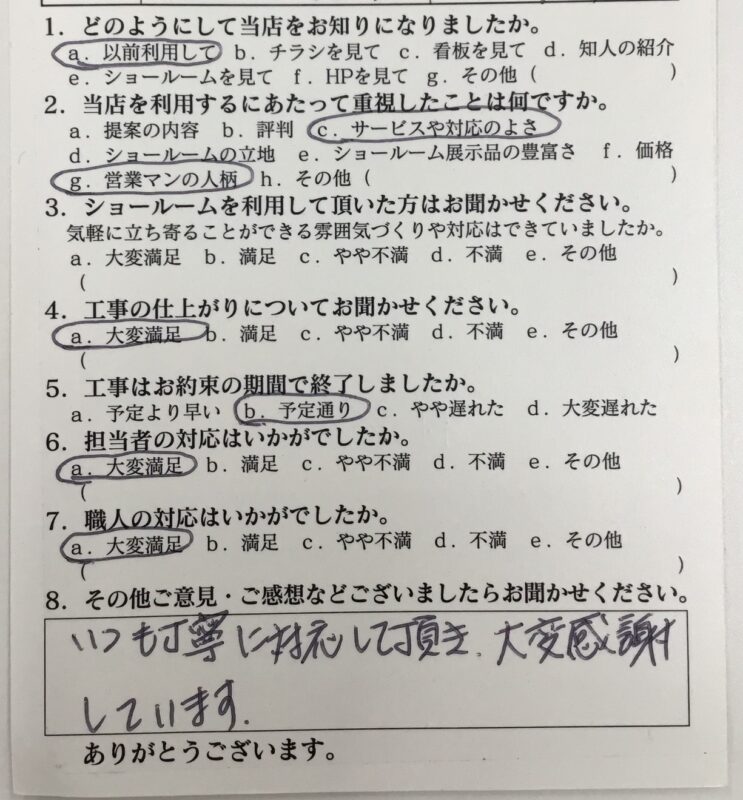 1. どのようにして当店をお知りになりましたか。
a. 以前利用して b. チラシを見て c. 看板を見て d. 知人の紹介
e. ショールームを見て f. HPを見て g. その他 ( )
2. 当店を利用するにあたって重視したことは何ですか。
a. 提案の内容 b. 評判 c. サービスや対応のよさ
d. ショールームの立地 e. ショールーム展示品の豊富さ f. 価格
g. 営業マンの人柄 h. その他 ( )
3. ショールームを利用して頂いた方はお聞かせください。
気軽に立ち寄ることができる雰囲気づくりや対応はできていましたか。
a. 大変満足 b. 満足 c. やや不満 d. 不満 e. その他
( )
4. 工事の仕上がりについてお聞かせください。
a. 大変満足 b. 満足 c. やや不満 d. 不満 e. その他
( )
5. 工事はお約束の期間で終了しましたか。
a. 予定より早い b. 予定通り c. やや遅れた d. 大変遅れた
6. 担当者の対応はいかがでしたか。
a. 大変満足 b. 満足 c. やや不満 d. 不満 e. その他
( )
7. 職人の対応はいかがでしたか。
a. 大変満足 b. 満足 c. やや不満 d. 不満 e. その他
( )
8. その他ご意見・ご感想などございましたらお聞かせください。
いつも丁寧に対応して頂き、大変感謝
しています。
ありがとうございます。